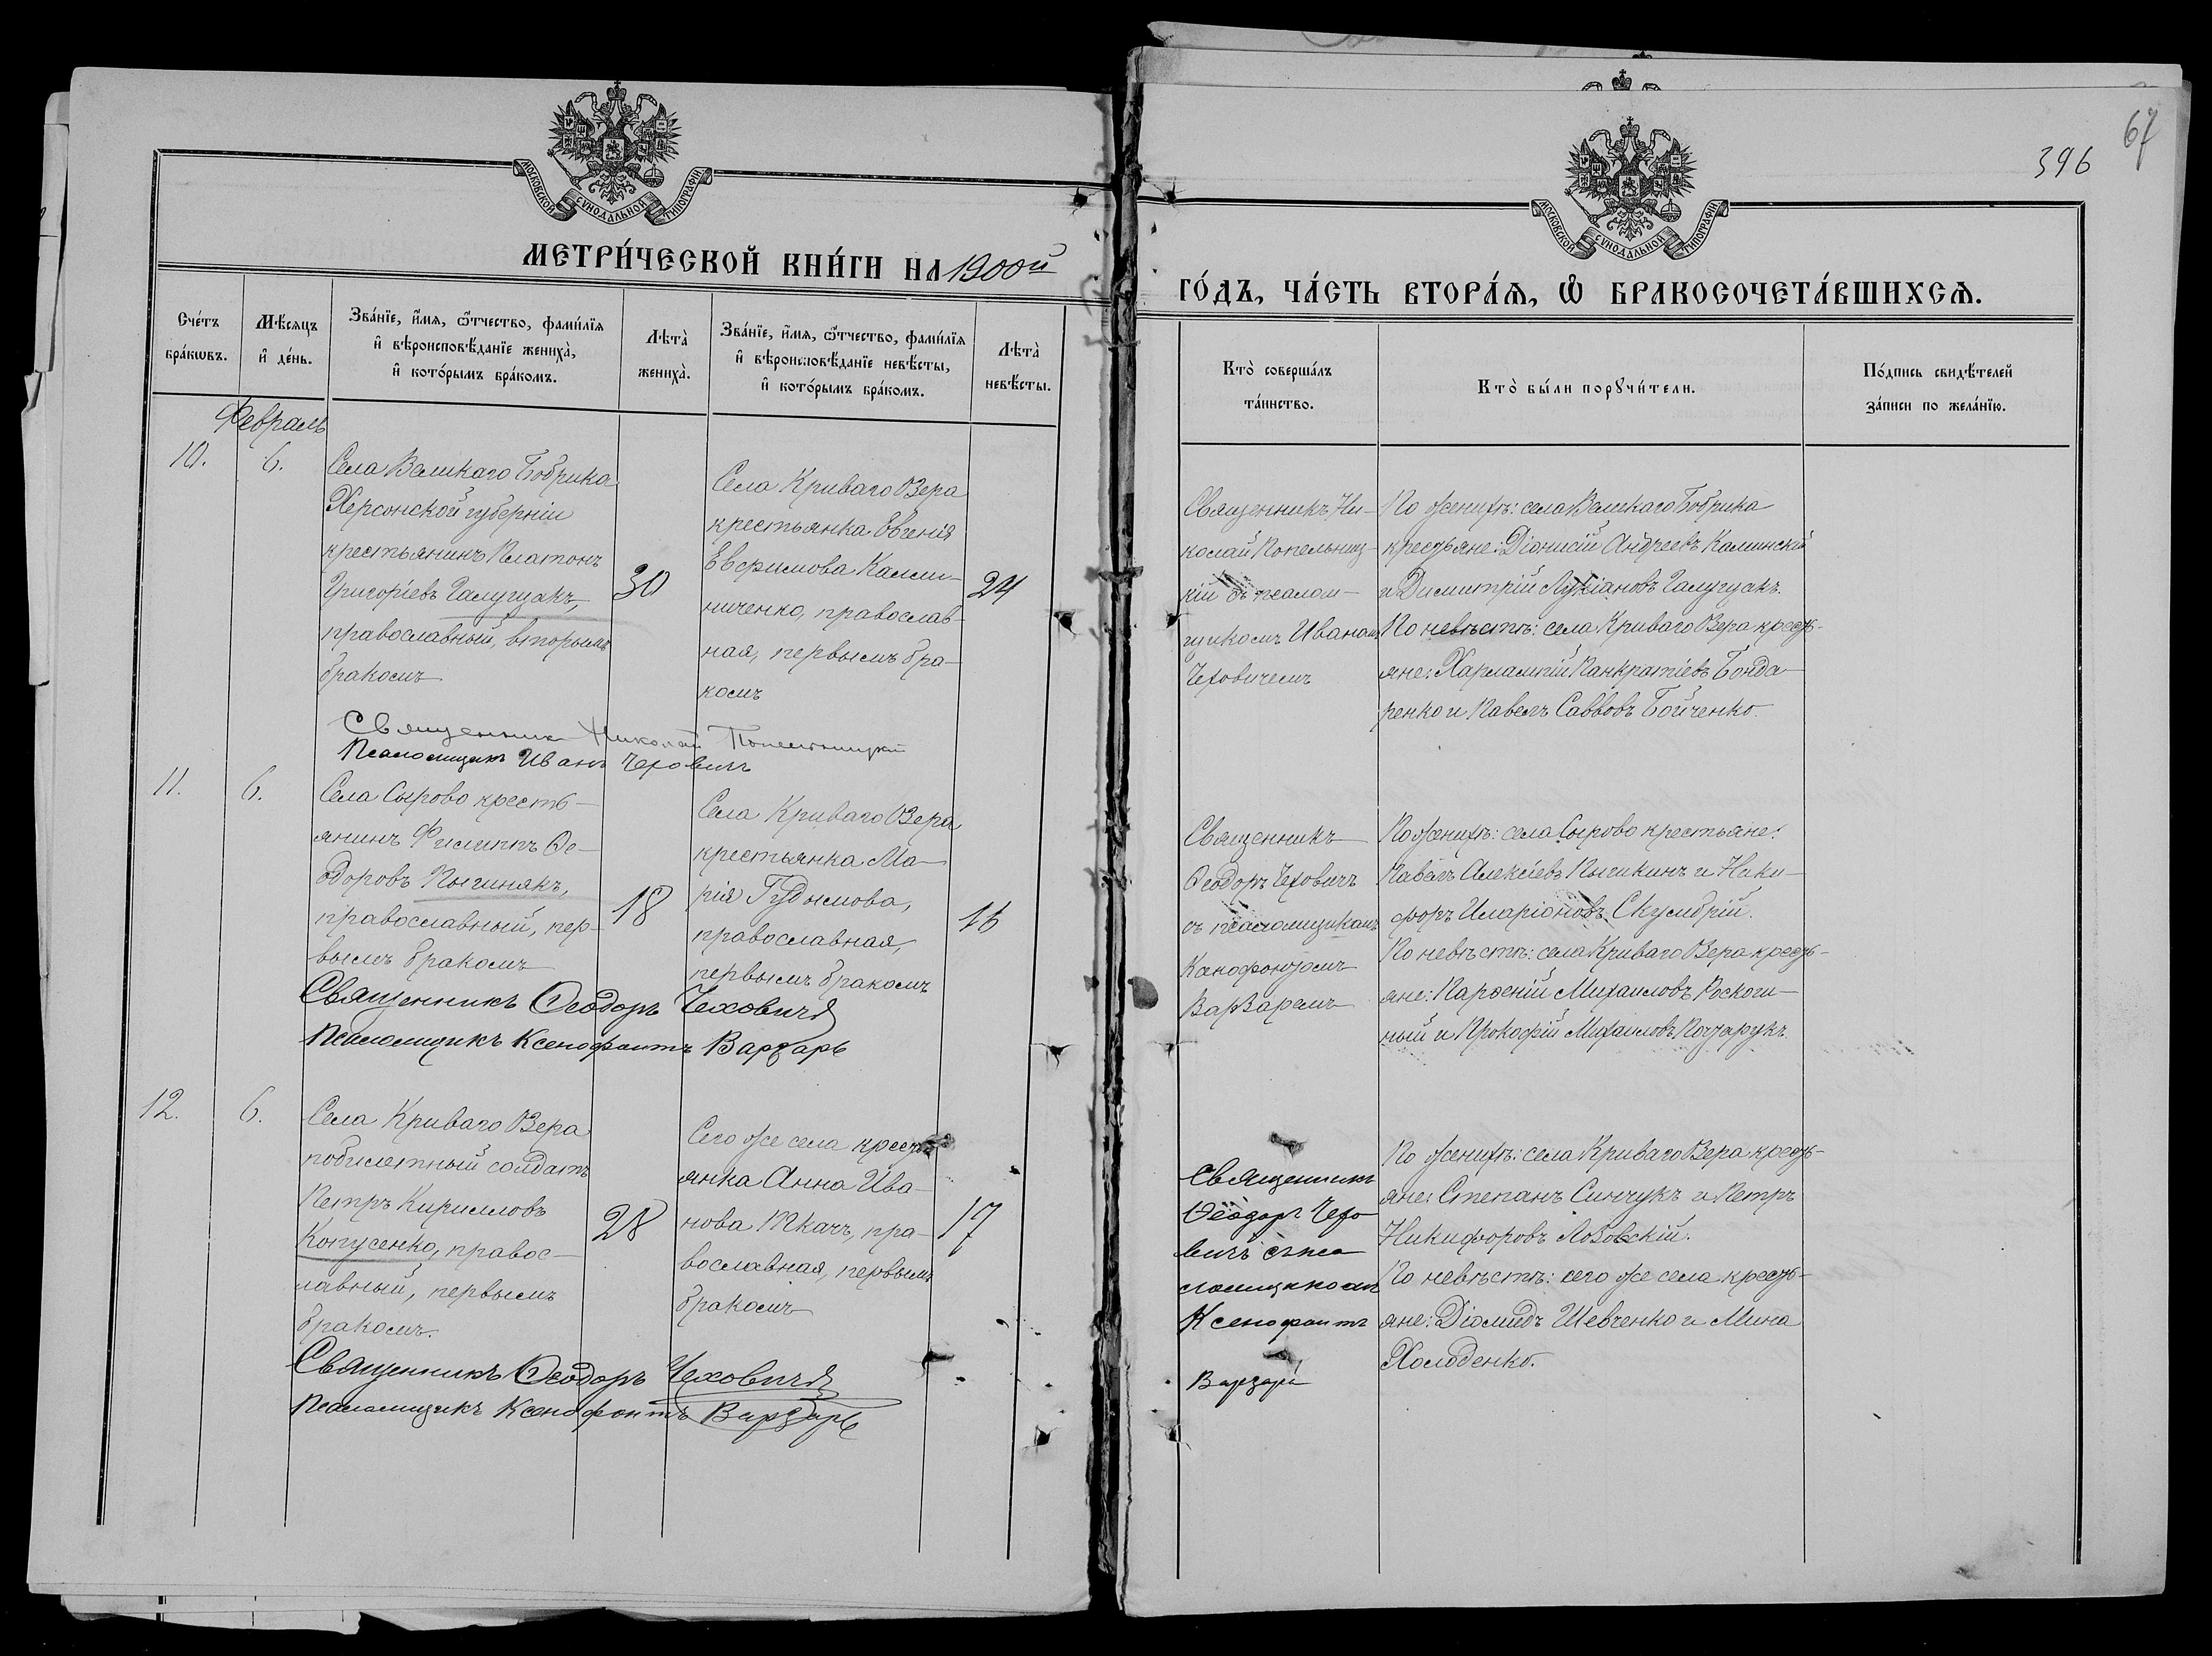 67
396
МОСКОВСКОЙ СѴНОДАЛЬНОЙ ТИПОГРАФІИ
МОСКОВСКОЙ СѴНОДАЛЬНОЙ ТИПОГРАФІИ
МЕТРИ́ЧЕСКОЙ КНИ́ГИ НА 1900й
ГО́ДЪ, ЧА́СТЬ ВТОРА́Я, Ѿ БРАКОСОЧЕТА́ВШИХСЯ.
Сче́тъ
бра́кѡвъ.
Мѣ́сяцъ
и҆ де́нь.
Зва́нїе, и҆́мя, ѻ҆́тчество, фами́лїя
и҆ вѣроисповѣ́данїе жениха̀,
и҆ кото́рымъ бра́комъ.
Лѣта̀
жениха̀.
Зва́нїе, и҆́мя, ѻ҆́тчество, фами́лїя
и҆ вѣроисповѣ́данїе невѣ́сты,
и҆ кото́рымъ бра́комъ.
Лѣта̀
невѣ́сты.
Кто̀ соверша́лъ
та́инство.
Кто̀ бы́ли порꙋчи́тели.
По́дпись свидѣ́телей
за́писи по жела́нїю.
Февраль
10.
6.
Села Великаго Бобрика
Херсонской губерніи
крестьянинъ Платонъ
Григоріевъ Галугцакъ,
православный, вторымъ
бракомъ
30
Села Криваго Озера
крестьянка Евгенія
Евфимова Кали-
ниченко, православ-
ная, первымъ бра-
комъ
24
Священникъ Ни-
колай Попельниц-
кій съ псалом-
щикомъ Иваномъ
Чеховичемъ
По женихѣ: села Великаго Бобрика
крестьяне: Діонисій Андреевъ Каминскій
и Димитрій Лукіановъ Галугцакъ.
По невѣстѣ: села Криваго Озера кресть-
яне: Харлампій Панкратіевъ Бонда-
ренко и Павелъ Саввовъ Бойченко.
Священникъ Николай Попельницкій
Псаломщикъ Иванъ Чеховичъ
11.
6.
Села Сырово кресть-
янинъ Филиппъ Ѳе-
одоровъ Пыгинякъ,
православный, пер-
вымъ бракомъ
18
Села Криваго Озера
крестьянка Ма-
рія Гудымова,
православная,
первымъ бракомъ
16
Священникъ
Ѳеодоръ Чеховичъ
съ псаломщикомъ
Ксенофонтомъ
Варзаремъ
По женихѣ: села Сырово крестьяне:
Павелъ Алексіевъ Пыгикинъ и Ники-
форъ Иларіоновъ Скумбрій.
По невѣстѣ: села Криваго Озера кресть-
яне: Парѳеній Михаиловъ Роскоги-
ный и Прокофій Михаиловъ Почтарукъ.
Священникъ Ѳеодоръ Чеховичъ
Псаломщикъ Ксенофонтъ Варзарь
12.
6.
Села Криваго Озера
побилетный солдатъ
Петръ Кирилловъ
Копусенко, правос-
лавный, первымъ
бракомъ.
28
Сего же села кресть-
янка Анна Ива-
нова Ткачъ, пра-
вославная, первымъ
бракомъ
17
Священникъ
Ѳеодоръ Чехо
вичъ съ пса
ломщикомъ
Ксенофонтъ
Варзарь
По женихѣ: села Криваго Озера кресть-
яне: Степанъ Синчукъ и Петръ
Никифоровъ Лозовскій.
По невѣстѣ: сего же села кресть-
яне: Діомидъ Шевченко и Мина
Холоденко.
Священникъ Ѳеодоръ Чеховичъ
Псаломщикъ Ксенофонтъ Варзарь